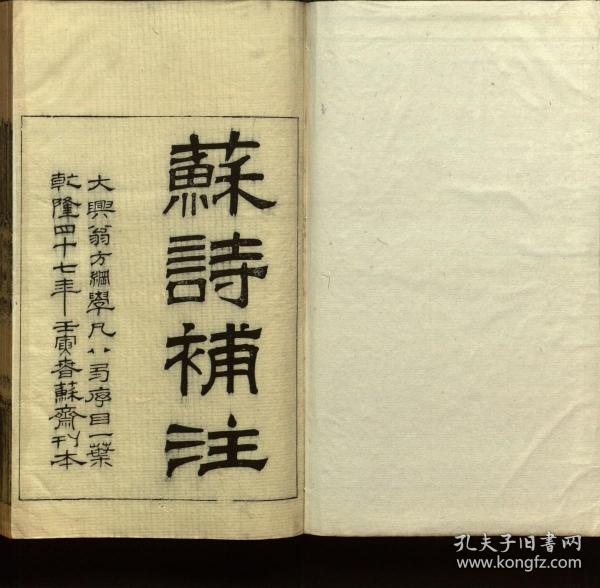 蘇詩補注
大興翁方綱學凡八卷序目一葉
乾隆四十七年壬寅春蘇齋刊本
孔夫子旧书网
www.kongfz.com